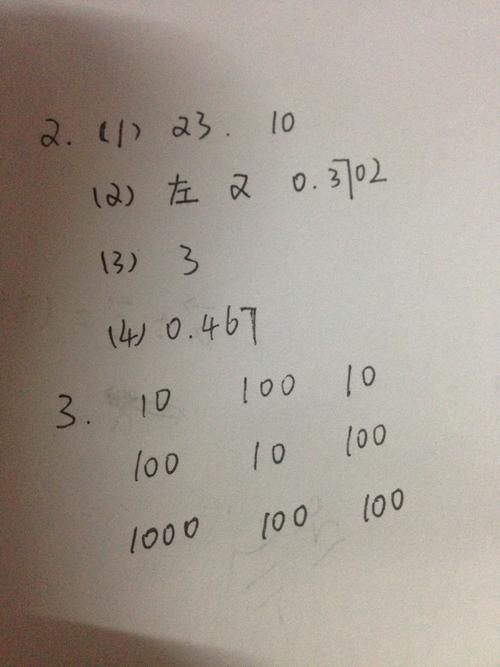 2. (1) 23. 10
(2) 左 2 0.3702
(3) 3
(4) 0.467
3. 10 100 10
100 10 100
1000 100 100